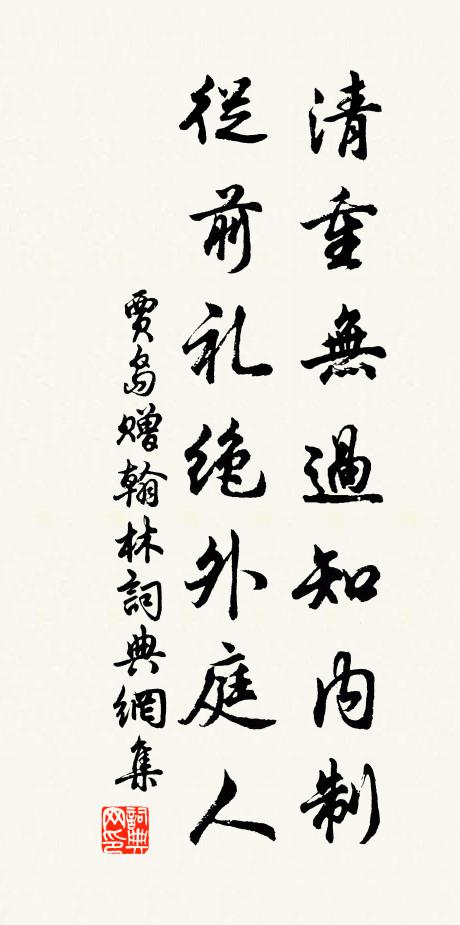 清重無過知内制
從前礼絶外庭人
賈島贈翰林詞典網集
詞典網印